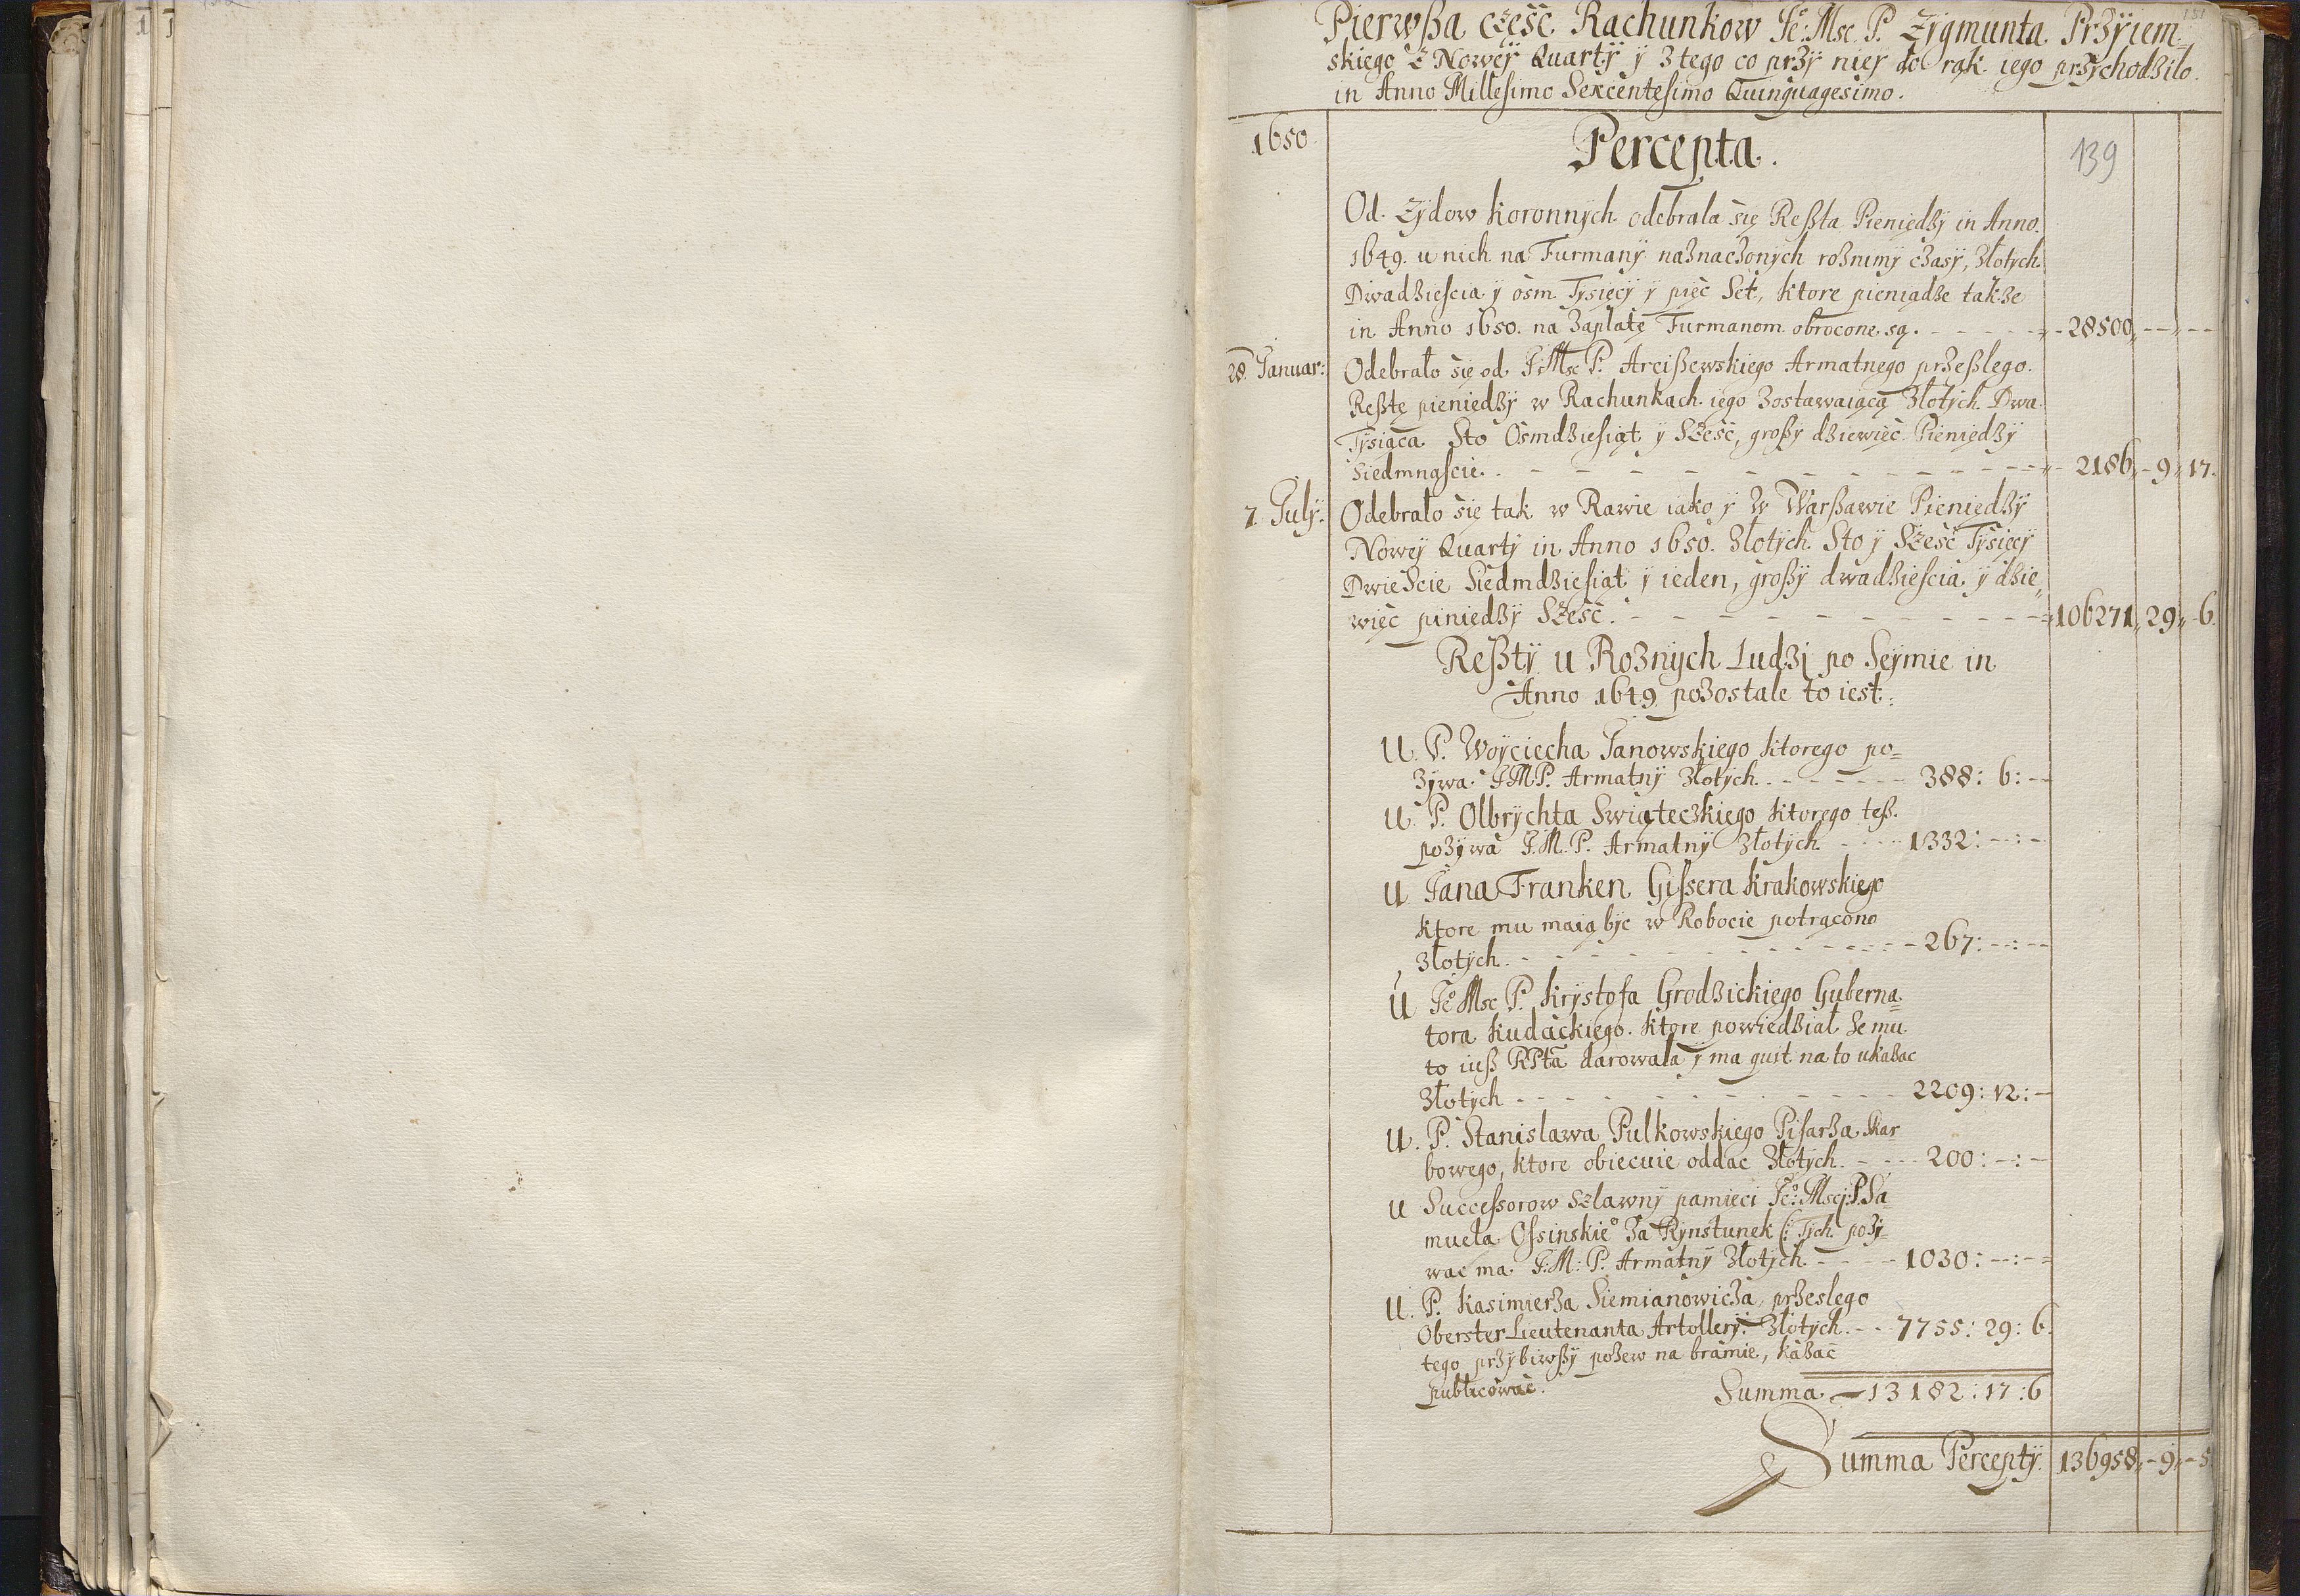 Pierwßa część Rachunkow Je͞o: Msc. P. Zygmunta Przyiem=
skiego z Nowey Quarty y z tego co przy niey do rąk iego przychodziło.
in Anno Millesimo Sexcentesimo Quinquagesimo.
1650.
Percepta.
139
Od Zydow Koronnych odebrala się Reßta Pieniedzy in Anno.
1649. u nich na Furmany naznaczonych roznymi czasy, Złotych
Dwadziescia y osm Tysięcy y pięc Set, Ktore pieniądze takze
in Anno 1650. na Zapłatę Furmanom obrocone są. 28500
28. Januar: Odebrało się od J: Msc P. Arcißewskiego Armatnego przeßlego.
Reßtę pieniedzy w Rachunkach iego Zostawaiącą Złotych Dwa
Tysiąca Sto Osmdziesiąt y Szesc, großy dziewięc Pieniedzy
Siedmnascie. 2186 - 9 - 17.
7. July: Odebrało się tak w Rawie iako y W Warßawie Pieniedzy
Nowey Quarty in Anno 1650. Złotych Sto y Szesc Tysięcy
Dwiescie Siedmdziesiąt y ieden, großy dwadziescia y dzie„
więc piniedzy Szesc. 106271 29 6.
Reßty u Roznych Ludzi po Seymie in
Anno 1649 pozostale to iest:
U. P. Woyciecha Janowskiego Ktorego po=
zywa J.M.P. Armatny Złotych 388: 6: --
U. P. Olbrychta Swiąteczkiego Ktorego teß.
pozywa J.M.P. Armatny Złotych 1332: --: --
U Jana Franken Gissera Krakowskiego
Ktore mu maią byc w Robocie potrącono
Złotych 267: --: --
U Je͞o Msc P. Krystofa Grodzickiego Guberna=
tora Kudackiego. Ktore powiedział Ze mu
to iuß RPta darowala y ma quit na to ukazac
Złotych 2209: 12: --
U. P. Stanislawa Pulkowskiego Pisarza Skar
bowego, Ktore obiecuie oddac Złotych 200: --: --
U Successorow Szlawny pamieci Je͞o: Mscj: P. Sa
mueła Ossinskie͞o Za Rynstunek (: Tych pozy=
wac ma J: M: P. Armatny Złotych 1030: --: --
U. P. Kasimierza Siemianowicza, przeslego
Oberster Lieutenanta Artollery: Złotych. 7755: 29: 6.
tego przybiwßy pozew na bramie, kazac
publicowac.
Summa 13182: 17: 6
Summa Percepty. 136958 - 9 - 5